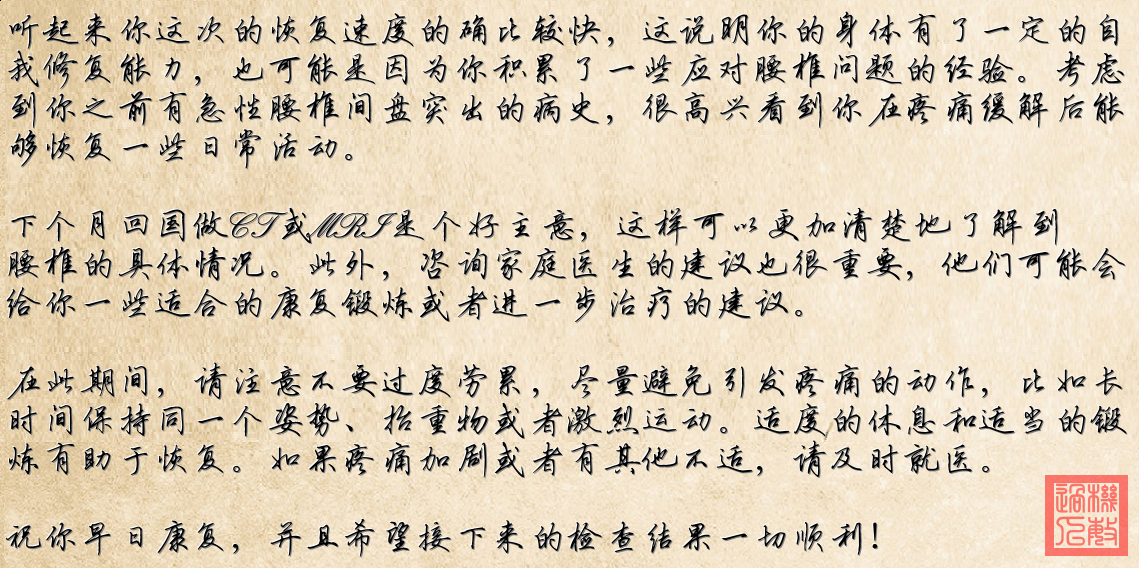 听起来你这次的恢复速度的确比较快，这说明你的身体有了一定的自
我修复能力，也可能是因为你积累了一些应对腰椎问题的经验。考虑
到你之前有急性腰椎间盘突出的病史，很高兴看到你在疼痛缓解后能
够恢复一些日常活动。
下个月回国做CT或MRI是个好主意，这样可以更加清楚地了解到
腰椎的具体情况。此外，咨询家庭医生的建议也很重要，他们可能会
给你一些适合的康复锻炼或者进一步治疗的建议。
在此期间，请注意不要过度劳累，尽量避免引发疼痛的动作，比如长
时间保持同一个姿势、抬重物或者激烈运动。适度的休息和适当的锻
炼有助于恢复。如果疼痛加剧或者有其他不适，请及时就医。
祝你早日康复，并且希望接下来的检查结果一切顺利！